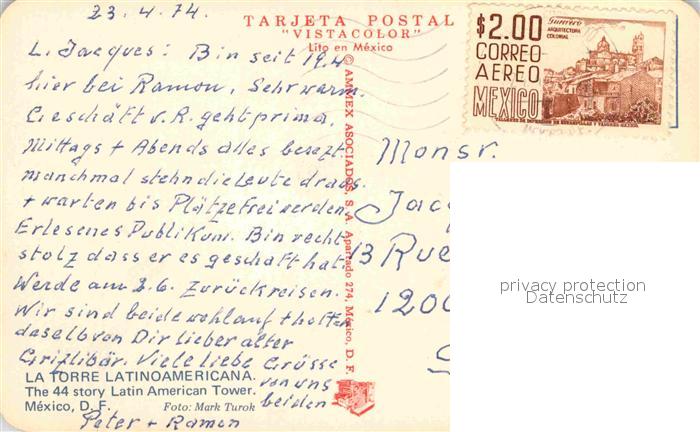 23.4.74.
TARJETA POSTAL
"VISTACOLOR"
Lito en México
L. Jacques: Bin seit 19.4
hier bei Ramon, Sehr warm.
Geschäft v. R. geht prima,
Mittags + Abends alles besezt.
manchmal stehn die Leute draus.
+ warten bis Plätze frei werden.
Erlesenes Publikum. Bin recht
stolz dass er es geschaft hat.
Werde am 2.6. zurückreisen.
Wir sind beide wohlauf + hoffen
daselb von Dir lieber alter
Grizlibär. Viele liebe Grüsse
von uns
beiden
Peter + Ramon
LA TORRE LATINOAMERICANA.
The 44 story Latin American Tower.
México, D. F.
Foto: Mark Turok
© AMMEX ASOCIADOS, S. A. Apartado 274, México, D. F.
$2.00
CORREO
AEREO
MEXICO
Guerrero
ARQUITECTURA
COLONIAL
Monsr.
Jac
13 Rue
120
privacy protection
Datenschutz